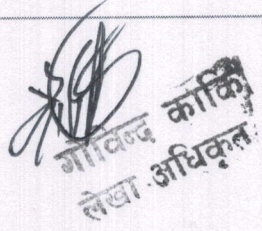 गोविन्द कार्की
लेखा अधिकृत